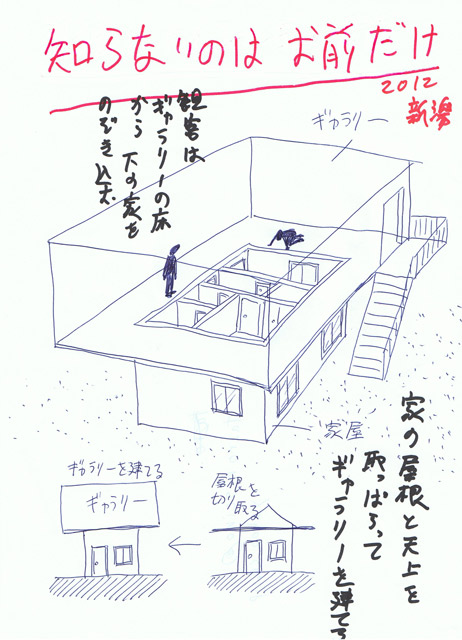 知らないのは お前だけ
2012
新潟
ギャラリー
観客は
ギャラリーの床
から 下の家を
のぞき込む
家屋
家の屋根と天上を
取っぱらって
ギャラリーを建てる
ギャラリーを建てる
ギャラリー
屋根を
切り取る